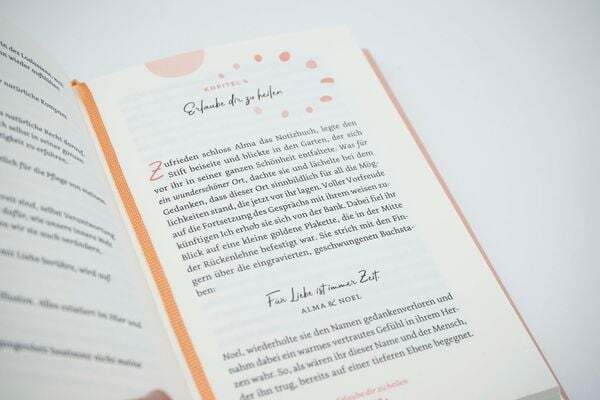 in des Loslassens, um
n wieder aufblühen
natürliche Kompass
natürliche Recht darauf,
ch selbst in seiner ganzen
eigkeit zu erfahren.
tlich für die Pflege von
rett sind, selbst Verantwortung
dafür, wie unsere innere Welt
wir sie noch verändern.
mit Liebe berühre, wird auf
llusion. Alles existiert im Hier und
KAPITEL 6
Erlaube dir, zu heilen
Zufrieden schloss Alma das Notizbuch, legte den
Stift beiseite und blickte in den Garten, der sich
vor ihr in seiner ganzen Schönheit entfaltete. Was für
ein wunderschöner Ort, dachte sie und lächelte bei dem
Gedanken, dass dieser Ort sinnbildlich für all die Mög-
lichkeiten stand, die jetzt vor ihr lagen. Voller Vorfreude
auf die Fortsetzung des Gesprächs mit ihrem weisen zu-
künftigen Ich erhob sie sich von der Bank. Dabei fiel ihr
Blick auf eine kleine goldene Plakette, die in der Mitte
der Rückenlehne befestigt war. Sie strich mit den Fin-
gern über die eingravierten, geschwungenen Buchsta-
ben:
Für Liebe ist immer Zeit.
ALMA & NOEL
Noel, wiederholte sie den Namen gedankenverloren und
nahm dabei ein warmes vertrautes Gefühl in ihrem Her-
zen wahr. So, als wären ihr dieser Name und der Mensch,
der ihn trug, bereits auf einer tieferen Ebene begegnet.
Erlaube dir zu heilen